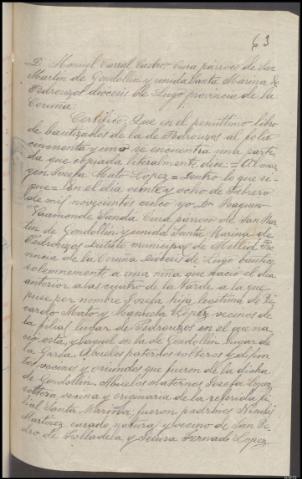 63
D. Manuel Varral Castro Cura párroco de San
Martín de Gondollín y unida Santa Marina de
Pedrouzos diocesis de Lugo provincia de la
Coruña
Certifico: Que en el penúltimo libro
de bautizados de la de Pedrouzos al folio
cincuenta y uno se encuentra una parti-
da que copiada literalmente, dice: = Al mar
gen. Josefa Mato Lopez = Dentro lo que si-
gue = En el dia veinte y ocho de Febrero
de mil novecientos cinco yo D. Joaquin
Vaamonde Cura párroco de San Mar
tín de Gondollín y unida Santa Marina de
Pedrouzos Distrito municipal de Mellid Pro
vincia de la Coruña Diocesis de Lugo bauticé
solemnemente a una niña que nació el dia
anterior a las cuatro de la tarde a la que
puse por nombre Josefa hija legítima de Ri-
cardo Mato y Manuela López vecinos de
la filial lugar de Pedrouzos en el que na-
ció esta, y aquel en la de Gondollín lugar de
la Garda. Abuelos paternos solteros y difun
tos vecinos y oriundos que fueron de la dicha
de Gondollín. Abuelos maternos Josefa López
soltera, vecina y originaria de la referida fi
lial Santa Marina: fueron padrinos
Martinez casado, y vecino de San Pe-
dro de Folladela, y López